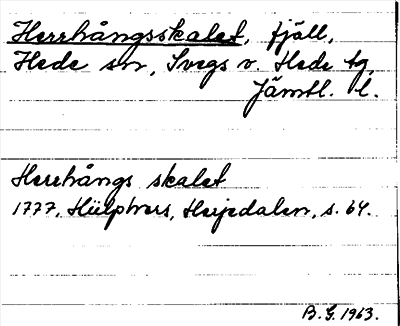 Herrhångsskalet, fjäll,
Hede sn, Svegs o. Hede tg,
Jämtl. l.
Herrhångs skalet
1777, Hülphers, Herjedalen, s. 64.
B.G. 1963.